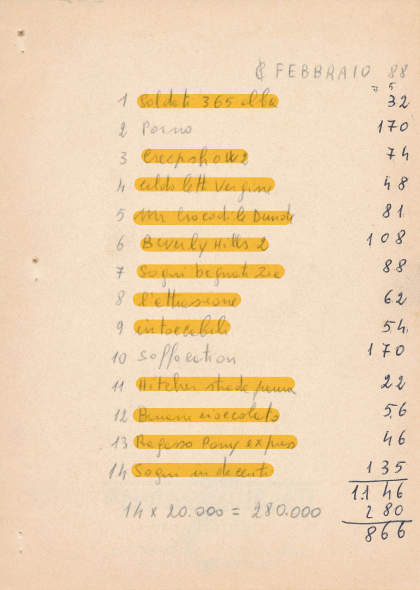 8 FEBBRAIO 88
1 Soldati 365 alba 32
2 Porno 170
3 Creepshow 2 74
4 caldo lett Vergine 48
5 Mr Crocodile Dunde 81
6 Beverly Hills 2 108
7 Sogni bagnati Zia 88
8 l'attrazione 62
9 intoccabili 54
10 Soffocation 170
11 Hitcher strada paura 22
12 Banane cioccolato 56
13 Ragasso Pony expres 46
14 Sogni indecenti 135
1146
14 x 20.000 = 280.000 280
866